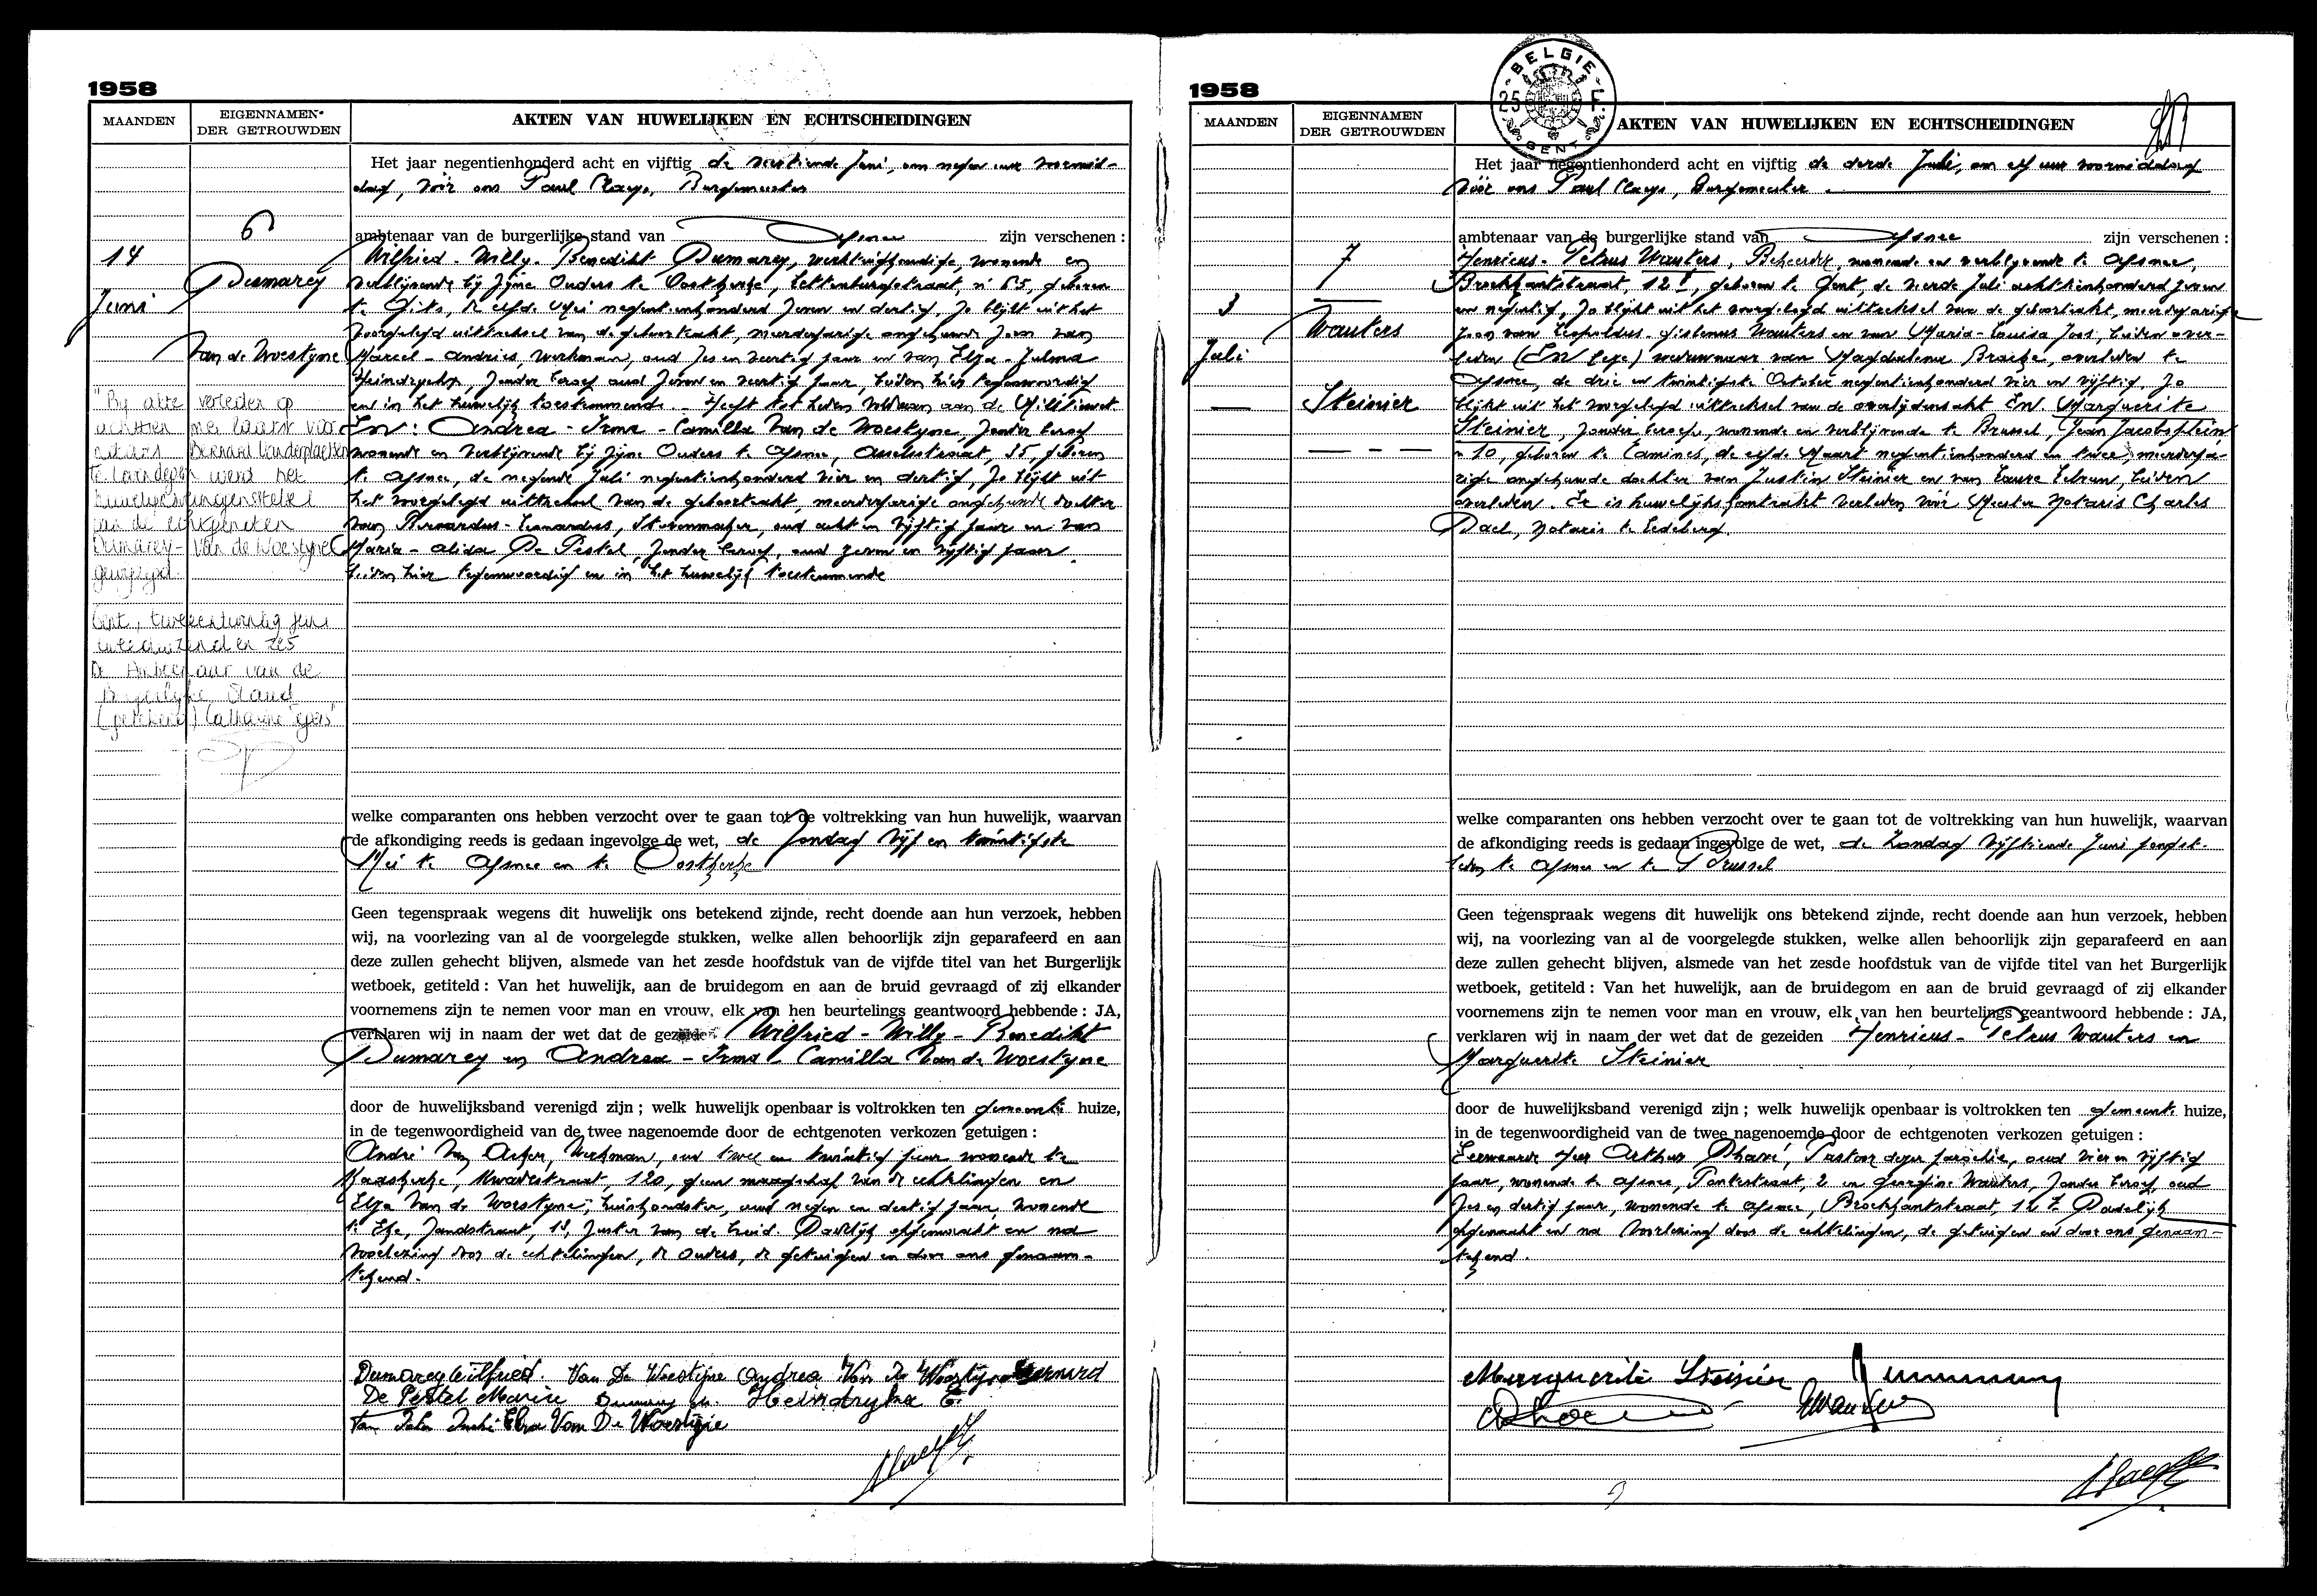 1958
MAANDEN
EIGENNAMEN
DER GETROUWDEN
AKTEN VAN HUWELIJKEN EN ECHTSCHEIDINGEN
Het jaar negentienhonderd acht en vijftig de veertiende Juni, om negen uur voormid-
dag, vóór ons Paul Claeys, Burgemeester
6
ambtenaar van de burgerlijke stand van Afsnee zijn verschenen :
14
Juni
Dumarey
Van de Woestyne
Wilfried - Willy - Benedikt Dumarey, werktuigkundige, wonende en
verblijvende bij zijne Ouders te Oostkerke, n° 65, geboren
te Gits, de elfde Mei negentienhonderd zeven en dertig, zo blijkt uit het
voorgelegd uittreksel van de geboorteakt, meerderjarige ongehuwde zoon van
Marcel - Andries, werkman, oud zes en veertig jaar en van Elza - Julma
zonder beroep oud zeven en veertig jaar, beiden hier tegenwoordig
en in het huwelijk toestemmende. Heeft tot heden voldaan aan de Militiewet
En : Andrea - Irma - Camilla Van de Woestyne, zonder beroep
wonende en verblijvende bij zijne Ouders te Afsnee, 35, geboren
te Afsnee, de negende Juli negentienhonderd vier en dertig, zo blijkt uit
het voorgelegd uittreksel van de geboorteakt, meerderjarige ongehuwde dochter
van Leonardus, oud acht en vijftig jaar en van
Maria - Alida De Pestel, zonder beroep, oud zeven en vijftig jaar,
beiden hier tegenwoordig en in het huwelijk toestemmende
"Bij akte verleden op
achttien mei laatst voor
notaris Bernard Vanderplaetsen
te werd het
huwelijks stelsel
van de echtgenoten
Dumarey - Van de Woestyne
gewijzigd.
Gent, tweeentwintig juni
tweeduizend en zes
De Ambtenaar van de
Burgerlijke Stand
(getekend) Catharine
welke comparanten ons hebben verzocht over te gaan tot de voltrekking van hun huwelijk, waarvan
de afkondiging reeds is gedaan ingevolge de wet, de zondag vijf en twintigste
Mei te Afsnee en te Oostkerke
Geen tegenspraak wegens dit huwelijk ons betekend zijnde, recht doende aan hun verzoek, hebben
wij, na voorlezing van al de voorgelegde stukken, welke allen behoorlijk zijn geparafeerd en aan
deze zullen gehecht blijven, alsmede van het zesde hoofdstuk van de vijfde titel van het Burgerlijk
wetboek, getiteld : Van het huwelijk, aan de bruidegom en aan de bruid gevraagd of zij elkander
voornemens zijn te nemen voor man en vrouw, elk van hen beurtelings geantwoord hebbende : JA,
verklaren wij in naam der wet dat de gezeiden Wilfried - Willy - Benedikt
Dumarey en Andrea - Irma - Camilla Van de Woestyne
door de huwelijksband verenigd zijn ; welk huwelijk openbaar is voltrokken ten gemeente huize,
in de tegenwoordigheid van de twee nagenoemde door de echtgenoten verkozen getuigen :
André Van Acker, Werkman, oud twee en twintig jaar wonende te
Kaaskerke, 120, geen maagschap van de echtelingen en
Elza Van de Woestyne, huishoudster, oud negen en dertig jaar, wonende
te Zandstraat, 18, zuster van de bruid. Dadelijk opgemaakt en na
voorlezing door de echtelingen, de ouders, de getuigen en door ons genaam-
tekend.
Dumarey Wilfried. Van De Woestijne Andrea Van De Woestijne
De Pestel Marie Heindryckx E.
Elza Van De Woestijne
1958
BELGIE
25 F
GENT
MAANDEN
EIGENNAMEN
DER GETROUWDEN
AKTEN VAN HUWELIJKEN EN ECHTSCHEIDINGEN
Het jaar negentienhonderd acht en vijftig de derde Juli, om elf uur voormiddag
vóór ons Paul Claeys, Burgemeester
ambtenaar van de burgerlijke stand van Afsnee zijn verschenen :
7
3
Juli
Wauters
Steinier
Henricus - Petrus Wauters, Beheerder, wonende en verblijvende te Afsnee,
geboren te Gent, de vierde Juli achttienhonderd zeven
en negentig, zo blijkt uit het voorgelegd uittreksel van de geboorteakt, meerderjarige
zoon van Leopoldus - Gislenus Wauters en van Maria - Louisa Joos, beiden over-
leden weduwnaar van Magdalena overleden te
Afsnee, de drie en twintigste October negentienhonderd vier en vijftig, zo
blijkt uit het voorgelegd uittreksel van de overlijdensakt En. Marguerite
Steinier, zonder beroep, wonende en verblijvende te Brussel, Jean Jacobsplein
n 10, geboren te Tamines, de elfde Maart negentienhonderd en twee, meerderja-
rige ongehuwde dochter van Justin Steinier en van Laure beiden
overleden. Er is huwelijkskontrakt verleden vóór Meester Notaris Charles
Dael, Notaris te Ledeberg.
welke comparanten ons hebben verzocht over te gaan tot de voltrekking van hun huwelijk, waarvan
de afkondiging reeds is gedaan ingevolge de wet, de Zondag vijftiende Juni jongst-
leden te Afsnee en te Brussel
Geen tegenspraak wegens dit huwelijk ons betekend zijnde, recht doende aan hun verzoek, hebben
wij, na voorlezing van al de voorgelegde stukken, welke allen behoorlijk zijn geparafeerd en aan
deze zullen gehecht blijven, alsmede van het zesde hoofdstuk van de vijfde titel van het Burgerlijk
wetboek, getiteld : Van het huwelijk, aan de bruidegom en aan de bruid gevraagd of zij elkander
voornemens zijn te nemen voor man en vrouw, elk van hen beurtelings geantwoord hebbende : JA,
verklaren wij in naam der wet dat de gezeiden Henricus - Petrus Wauters en
Marguerite Steinier
door de huwelijksband verenigd zijn ; welk huwelijk openbaar is voltrokken ten gemeente huize,
in de tegenwoordigheid van de twee nagenoemde door de echtgenoten verkozen getuigen :
Eerwaarde Heer Arthur Pastoor dezer parochie, oud vier en vijftig
jaar, wonende te Afsnee, 2 en Georgine Wauters, zonder beroep, oud
zes en dertig jaar, wonende te Afsnee, Dadelijk
opgemaakt en na voorlezing door de echtelingen, de getuigen en door ons genaam-
tekend.
Marguerite Steinier